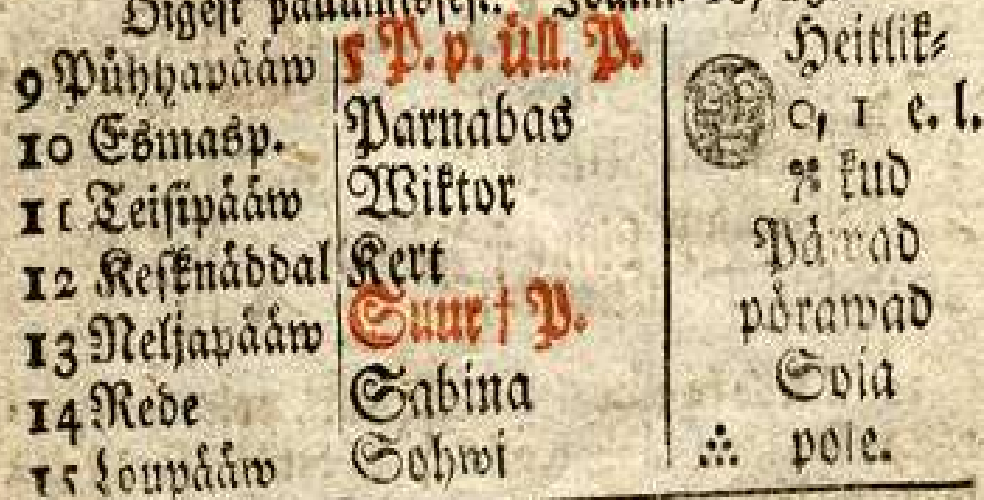 9 Pühhapääw 5 P. p. üll. P. Heitlik-
10 Esmasp. Parnabas 0, 1 e. l.
11 Teisipääw Wiktor kud
12 Kesknäddal Kert Päwad
13 Neljapääw Suur † P. pörawad
14 Rede Sabina Soia
15 Loupääw Sohwi pole.